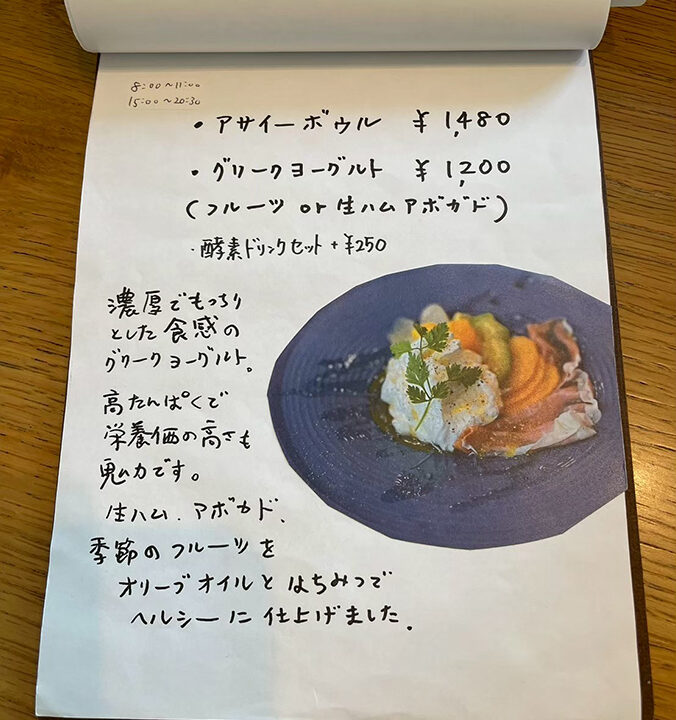 8:00～11:00
15:00～20:30
・アサイーボウル ¥1,480
・グリークヨーグルト ¥1,200
(フルーツ or 生ハムアボガド)
・酵素ドリンクセット +¥250
濃厚でもっちり
とした食感の
グリークヨーグルト。
高たんぱくで
栄養価の高さも
魅力です。
生ハム、アボカド、
季節のフルーツを
オリーブオイルとはちみつで
ヘルシーに仕上げました。